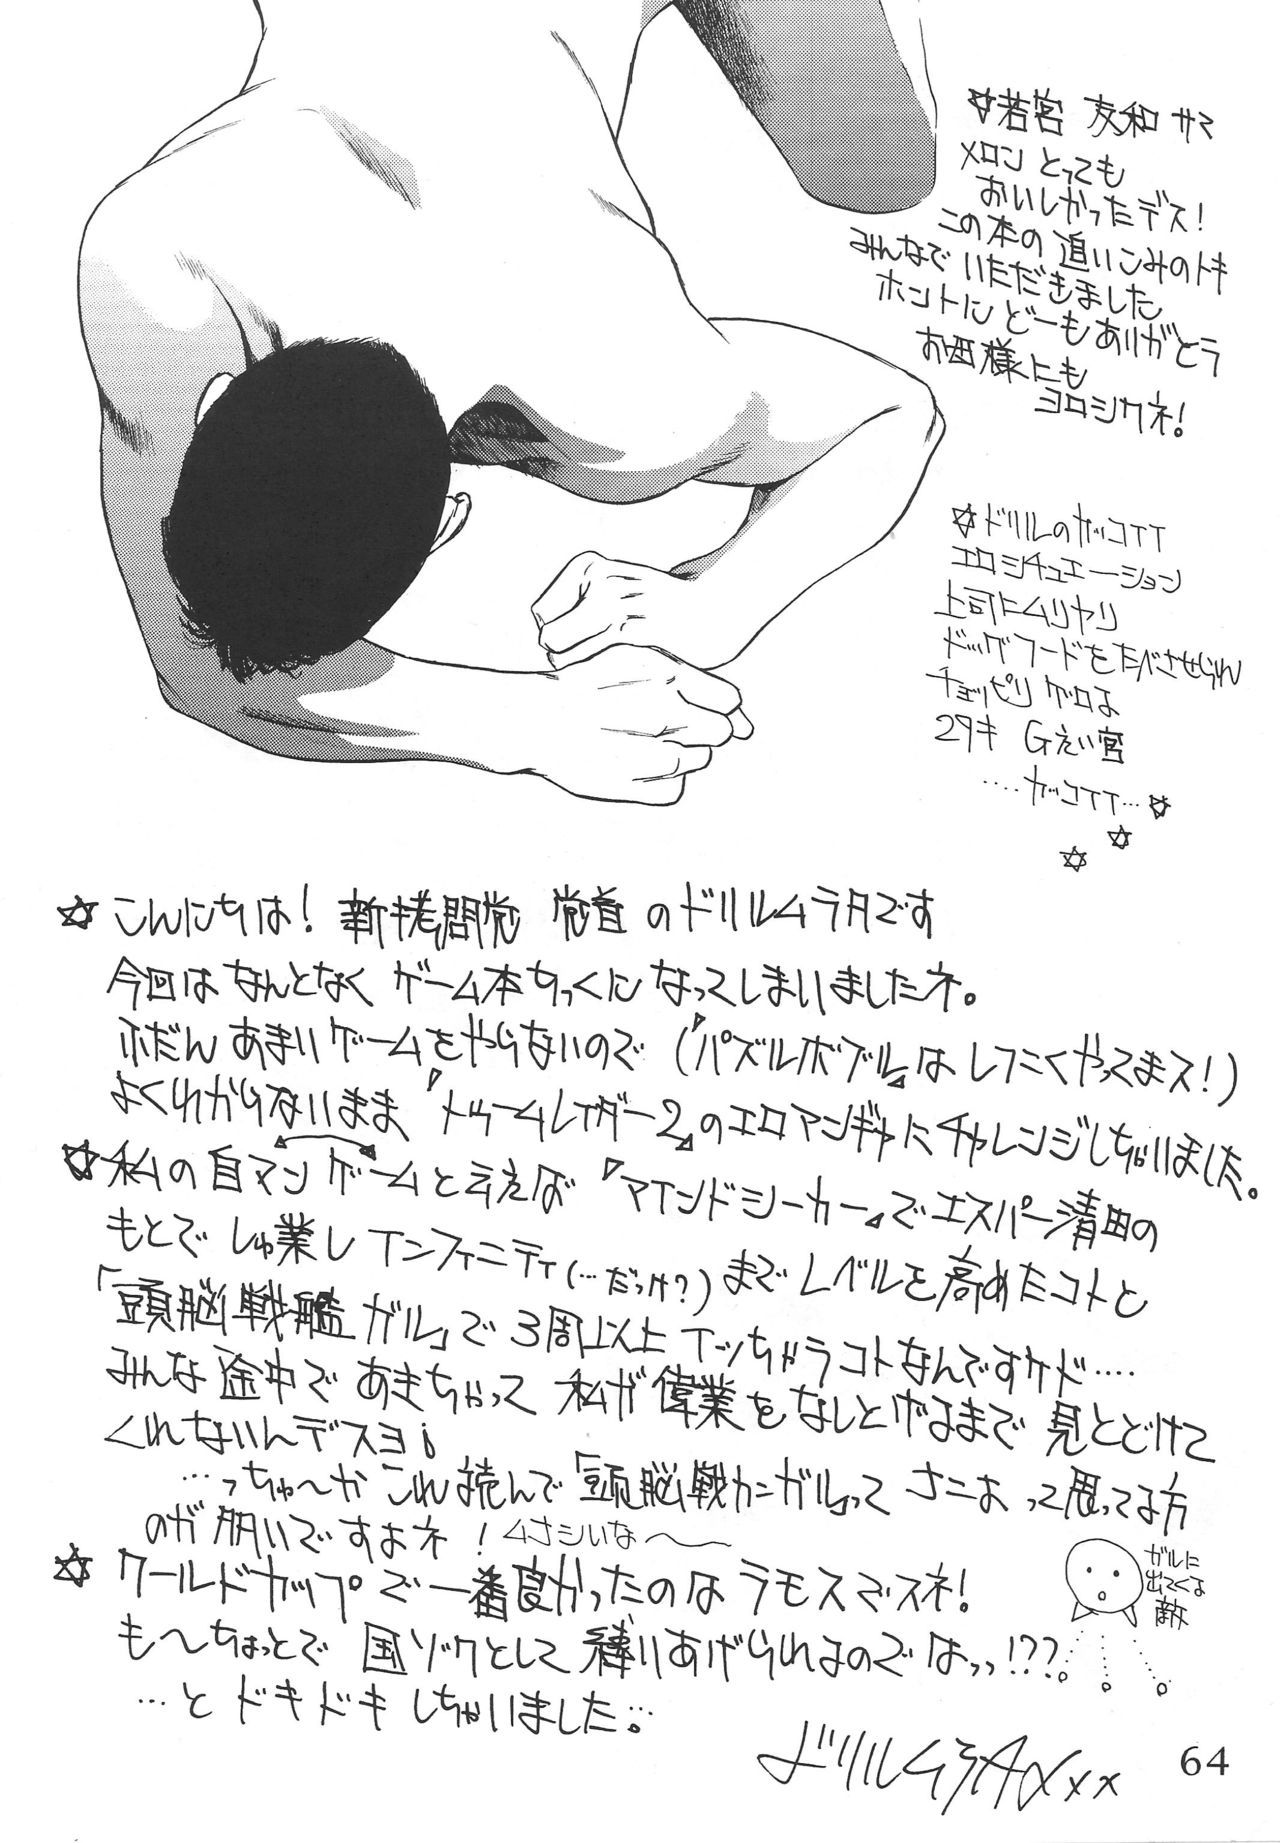 ☆若宮 友和 サマ
メロン とっても
おいしかったデス!
この本の 追いこみのトキ
みんなで いただきました
ホントに どーもありがとう
お母様にも
ヨロシクネ!
☆ドリルのカッコイイ
エロシチュエーション
上司にムリヤリ
ドッグフードをたべさせられ
チョッピリ ゲロる
29才 Gえい官
‥‥カッコイイ…☆
☆
☆
☆こんにちは! 新拷問党 党首 のドリルムラタです
今回は なんとなく ゲーム本ちっくに なってしまいましたネ。
ふだん あまりゲームをやらないので (『パズルボブル』は しつこくやってまス!)
よくわからないまま 『トゥームレイダー2』のエロマンガにチャレンジしちゃいました。
☆私の 自マンゲームと言えば 『マインドシーカー』でエスパー清田の
もとで しゅ業し インフィニティ(…だっけ?)までレベルを高めたコトと
「頭脳戦艦ガル」で 3周以上 イッちゃうコトなんですケド‥‥
みんな 途中で あきちゃって 私が 偉業をなしとげるまで 見とどけて
くれないんデスヨ。
…っちゅ〜か これ読んで「頭脳戦カンガル」って なによ って思ってる方
のが 多いですよネ! ムナシいな〜
☆ワールドカップで 一番良かったのは ラモスでスネ!
も〜ちょっとで 国ゾクとして 祭りあげられるのでは っっ!???。
…と ドキドキ しちゃいました‥
ガルに
出てくる
敵
ドリルムラタ xxx
64